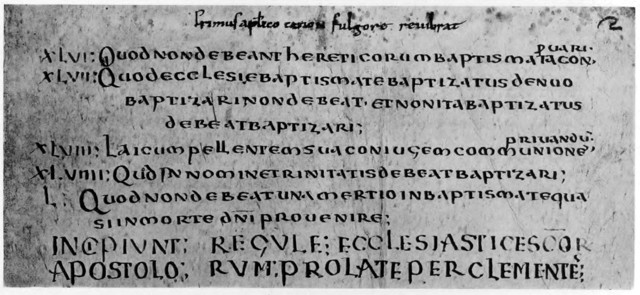 Primus aplico canon fulgore reuibrat
puari·
XLVI: Quod non debeant hereticorum baptismata con,
XLVII: Quod ecclesie baptismate baptizatus denuo
baptizari non debeat· et non ita baptizatus
debeat baptizari;
priuandū·
XLVIII: Laicum pellentem suam coniugem communione
XLVIIII: Quod in nomine trinitatis debeat baptizari;
L: Quod non debeat una mertio in baptismate qua
si in morte dn̄i prouenire;
INCIPIUNT; REGULE; ECCLESIASTICE SCOR̄
APOSTOLO; RUM; PROLATE PER CLEMENTĒ;